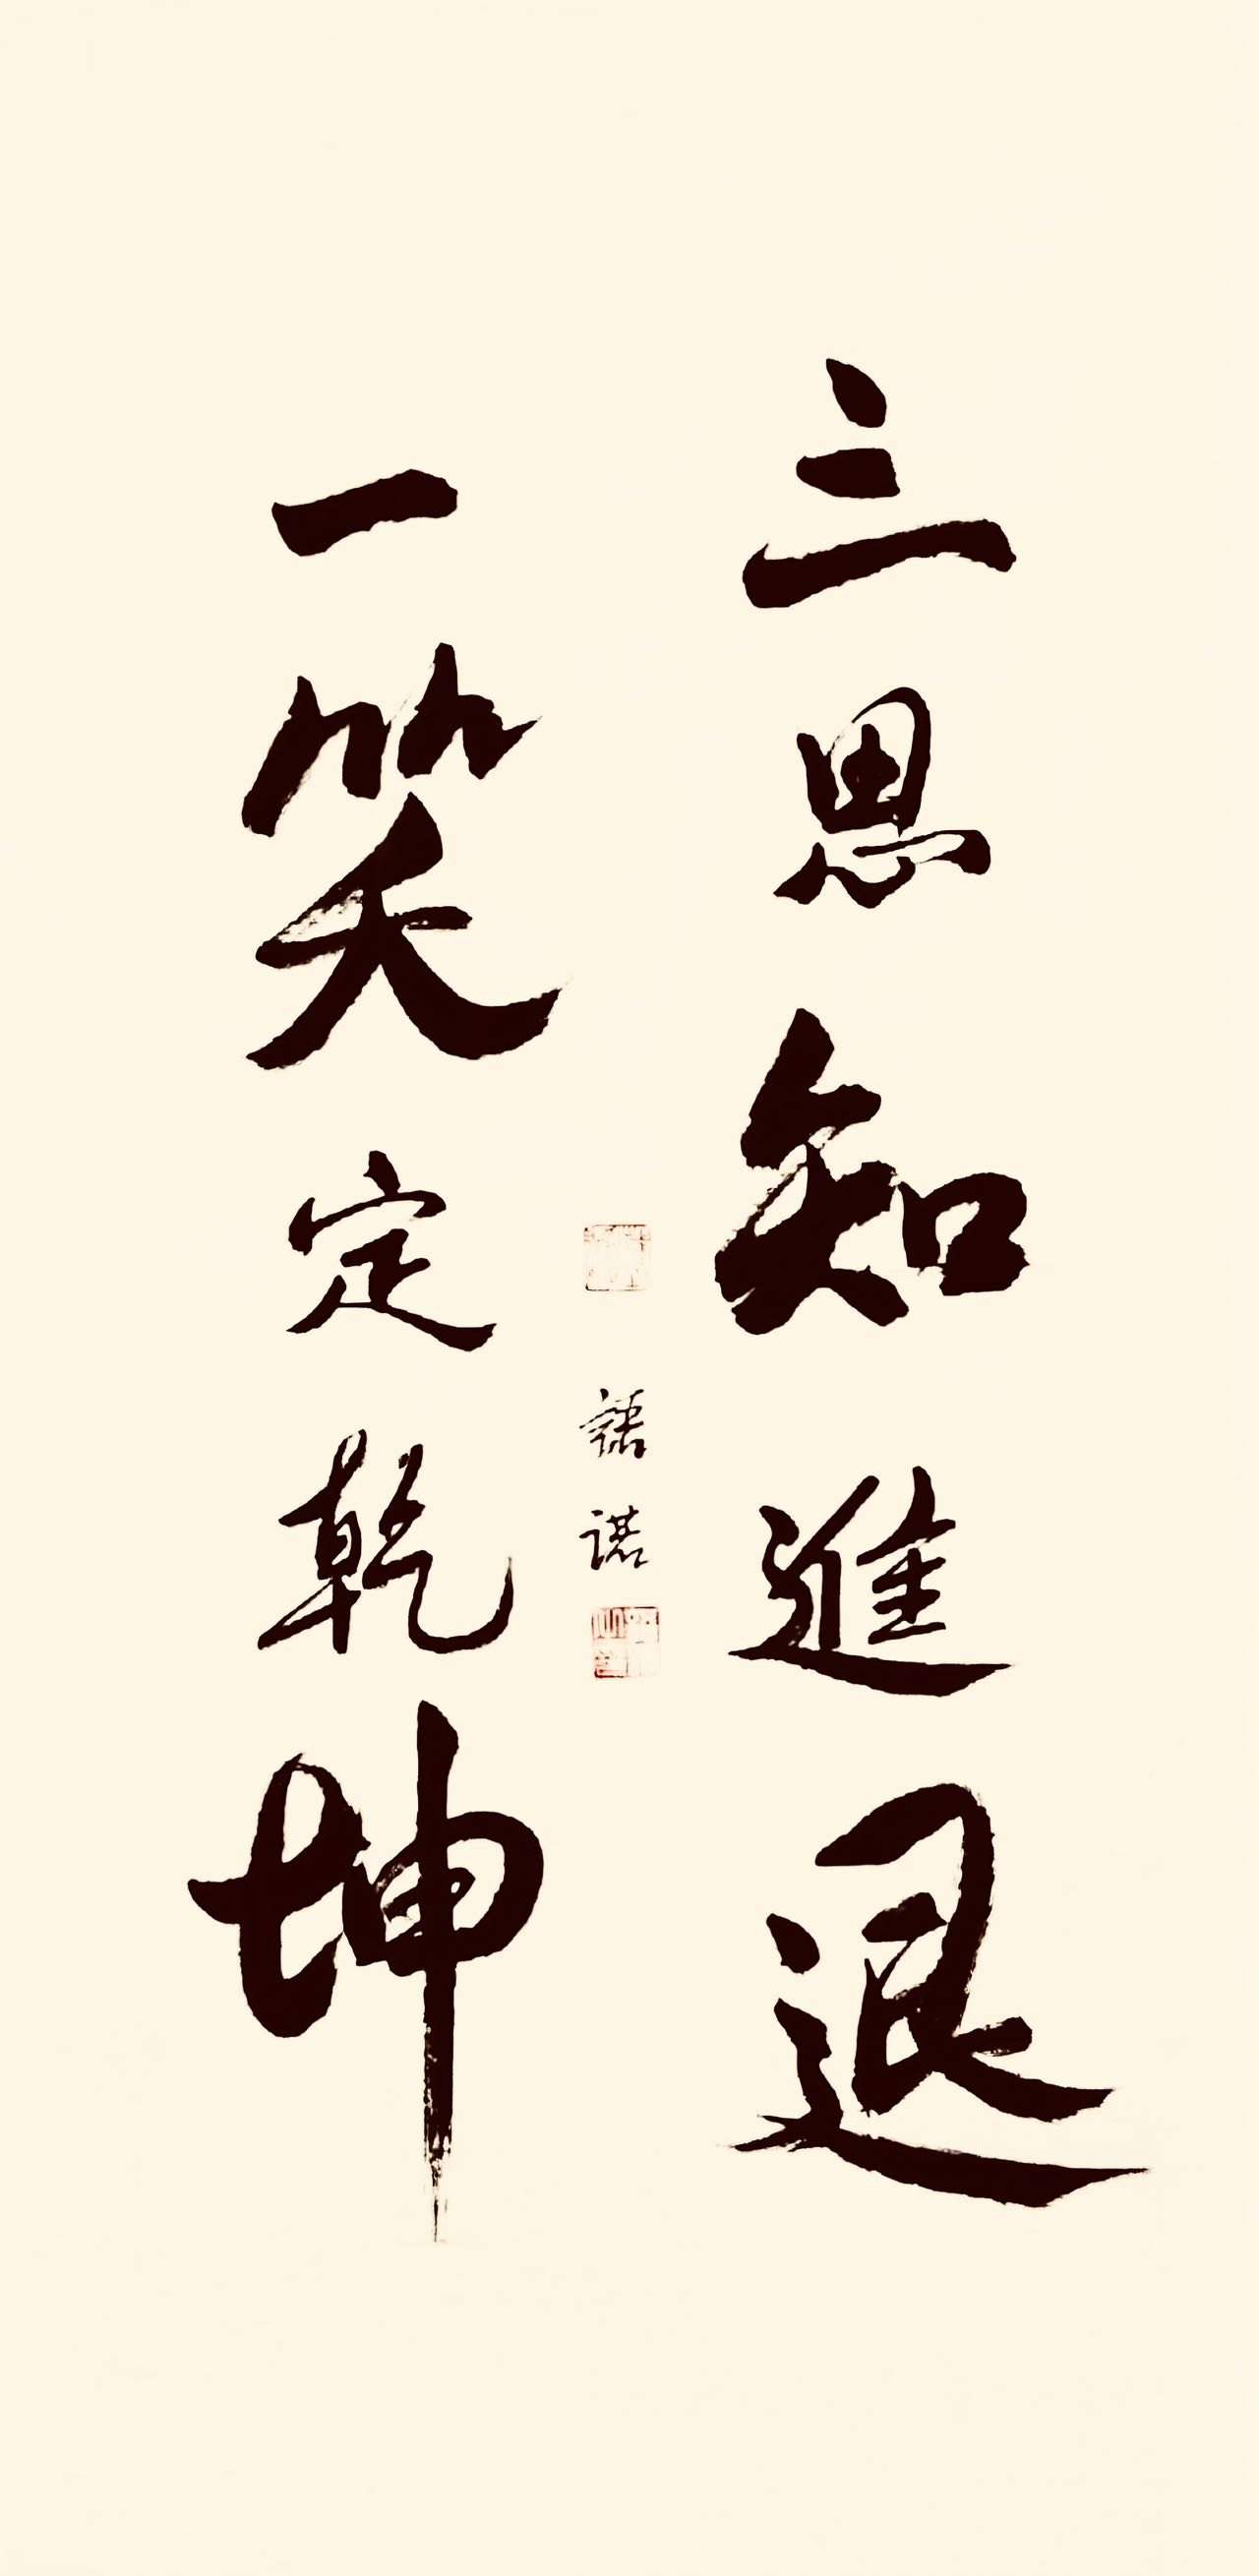 三思知進退
一笑定乾坤